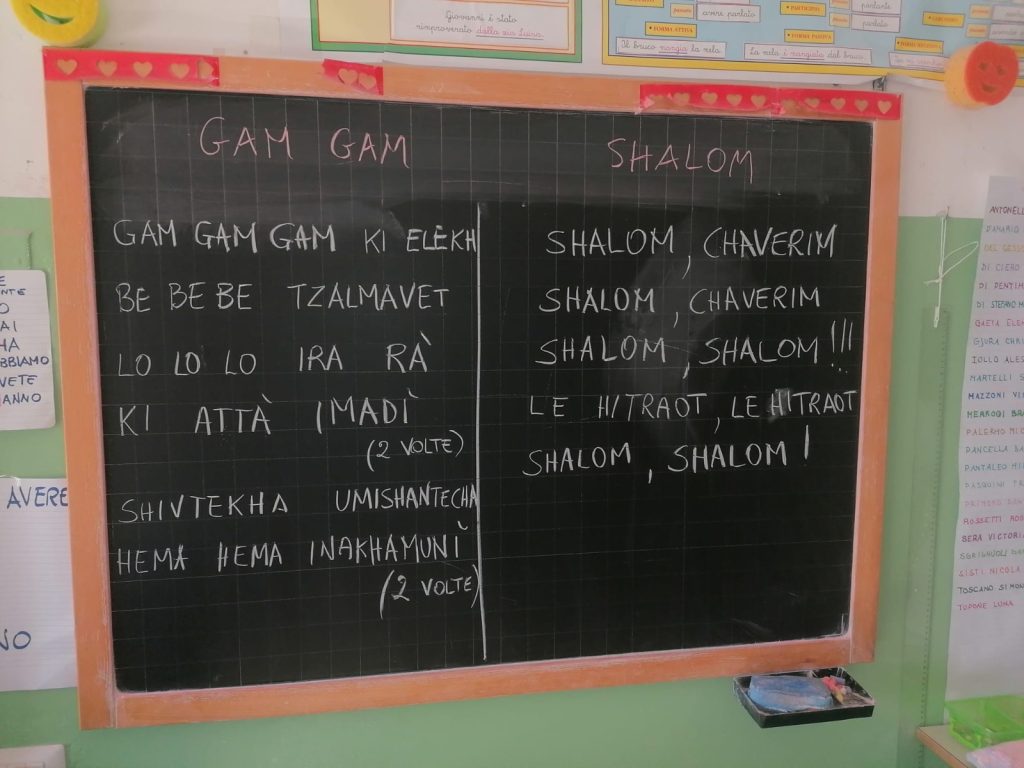 Giovanni è stato
rimproverato dalla zia Luisa.
avere parlato
PARTICIPIO
parlante
parlato
FORMA ATTIVA
FORMA PASSIVA
Il bruco mangia la mela
La mela è mangiata dal bruco.
GAM GAM
GAM GAM GAM KI ELÈKH
BE BE BE TZALMAVET
LO LO LO IRA RÀ
KI ATTÀ IMADÌ
(2 VOLTE)
SHIVTEKHA UMISHANTECHA
HEMA HEMA INAKHAMUNÌ
(2 VOLTE)
SHALOM
SHALOM, CHAVERIM
SHALOM, CHAVERIM
SHALOM, SHALOM!!!
LE HITRAOT, LE HITRAOT
SHALOM, SHALOM!
AVERE
VETE
ANNO
NO
ANTONELL
D'AMARIO
DEL GESS
DI CIERO
DI DENTIM
DI STEFANO M
GAETA ELE
GJURA CHRI
IOLLO ALES
MARTELLI S
MAZZONI VI
PALERMO MIC
PANTALEO MI
ROSSETTI ROS
BERA VICTORI
SISTI NICOLA
TOSCANO SIMON
TUPONE LUNA